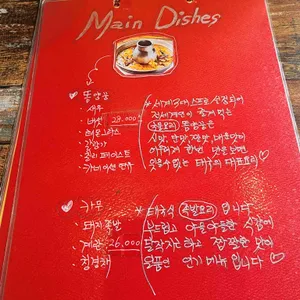 Main Dishes
똠얌꿍
· 새우
· 버섯 28,000
· 레몬그라스
· 칠리페이스트
· 카네이션 연유
* 세계 3대 스프로 선정되어
전세계인이 즐겨 먹는
국물요리 똠얌꿍은
신맛, 단맛, 짠맛, 매운맛이
어우러져 한번 먹으면
잊을 수 없는 태국의 대표요리
카무
· 돼지족발
· 계란 26,000
· 청경채
* 태국식 족발요리 입니다
부드럽고 야들야들한 식감에
달착지근하고 짭짤한 맛이
일품인 인기 메뉴 입니다